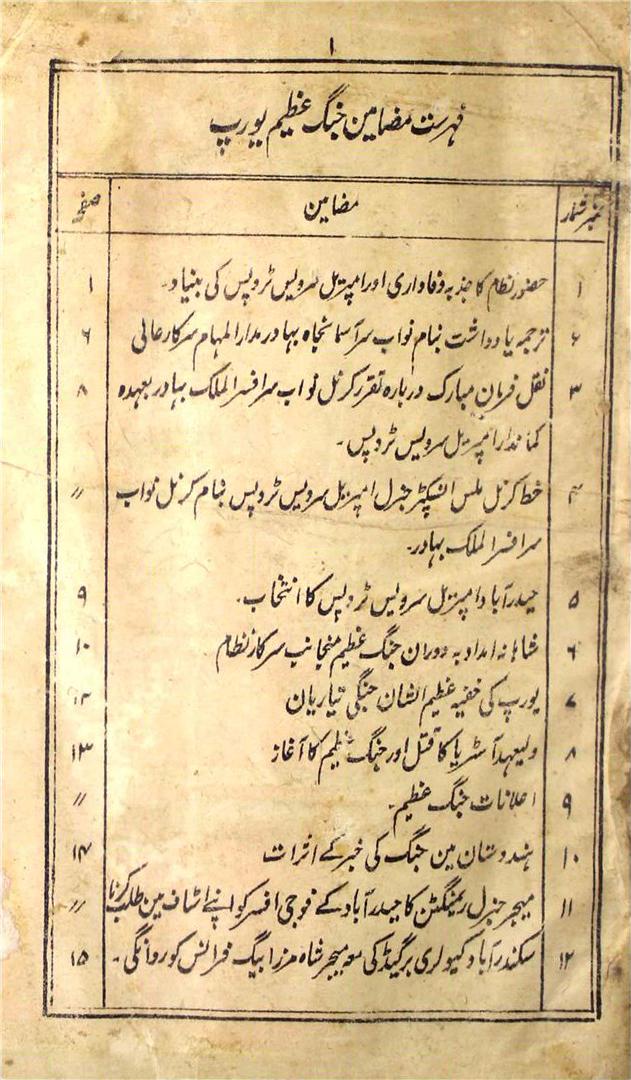 ۱
فہرست مضامین جنگ عظیم یورپ
نمبر شمار مضامین صفحہ
۱ حضور نظام کا جذبہ وفاداری اور امپیریل سرویس ٹروپس کی بنیاد۔ ۱
۲ ترجمہ یادداشت بنام نواب سر آسمانجاہ بہادر مدارالمہام سرکار عالی ۶
۳ نقل فرمان مبارک دربارہ تقرر کرنل نواب سر افسر الملک بہادر بعہدہ ۸
کماندار امپیریل سرویس ٹروپس۔
۴ خط کرنل ملس انسپکٹر جنرل امپیریل سرویس ٹروپس بنام کرنل نواب //
سر افسر الملک بہادر۔
۵ حیدرآباد امپیریل سرویس ٹروپس کا انتخاب۔ ۹
۶ شاہانہ امداد بہ دوران جنگ عظیم منجانب سرکار نظام ۱۰
۷ یورپ کی خفیہ عظیم الشان جنگی تیاریان ۱۲
۸ ولیعہد آسٹریا کا قتل اور جنگ عظیم کا آغاز ۱۳
۹ اعلانات جنگ عظیم۔ //
۱۰ ہندوستان مین جنگ کی خبر کے اثرات ۱۴
۱۱ میجر جنرل ریمنگٹن کا حیدرآباد کے فوجی افسر کو اپنے اسٹاف مین طلب کرنا //
۱۲ سکندرآباد کیولری برگیڈ کی معہ میجر شاہ مرزا بیگ فرانس کو روانگی۔ ۱۵